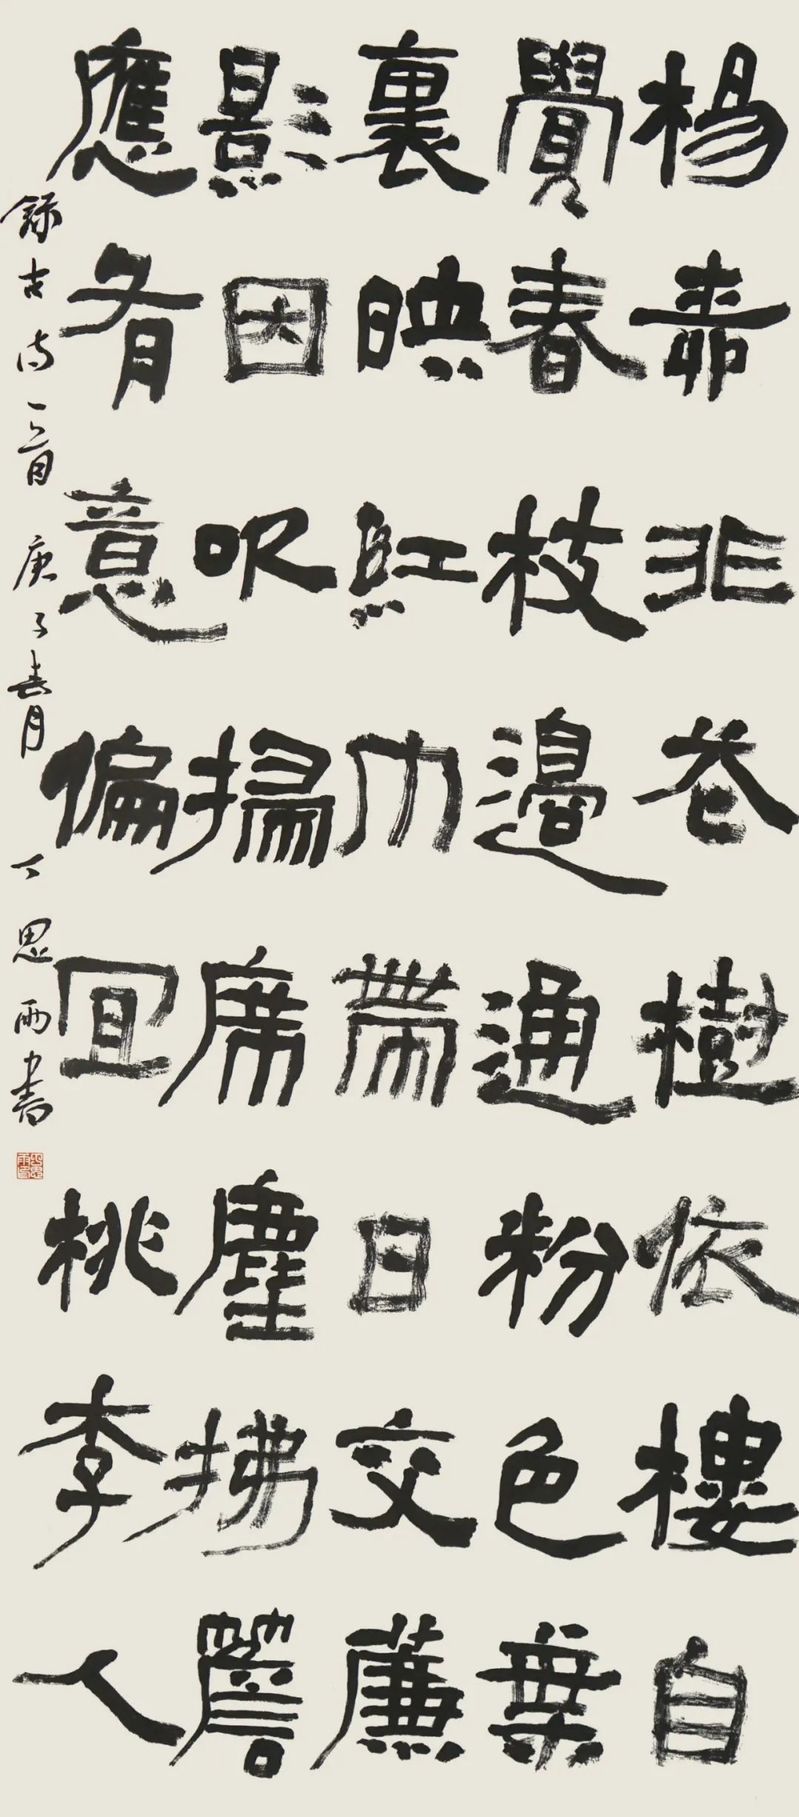 楊柳非花樹依樓自
覺春枝邊通粉色葉
裏映紅巾帶日交簾
影因吹掃席塵拂簷
應有意偏宜桃李人
録古詩一首庚子春月丁思雨書